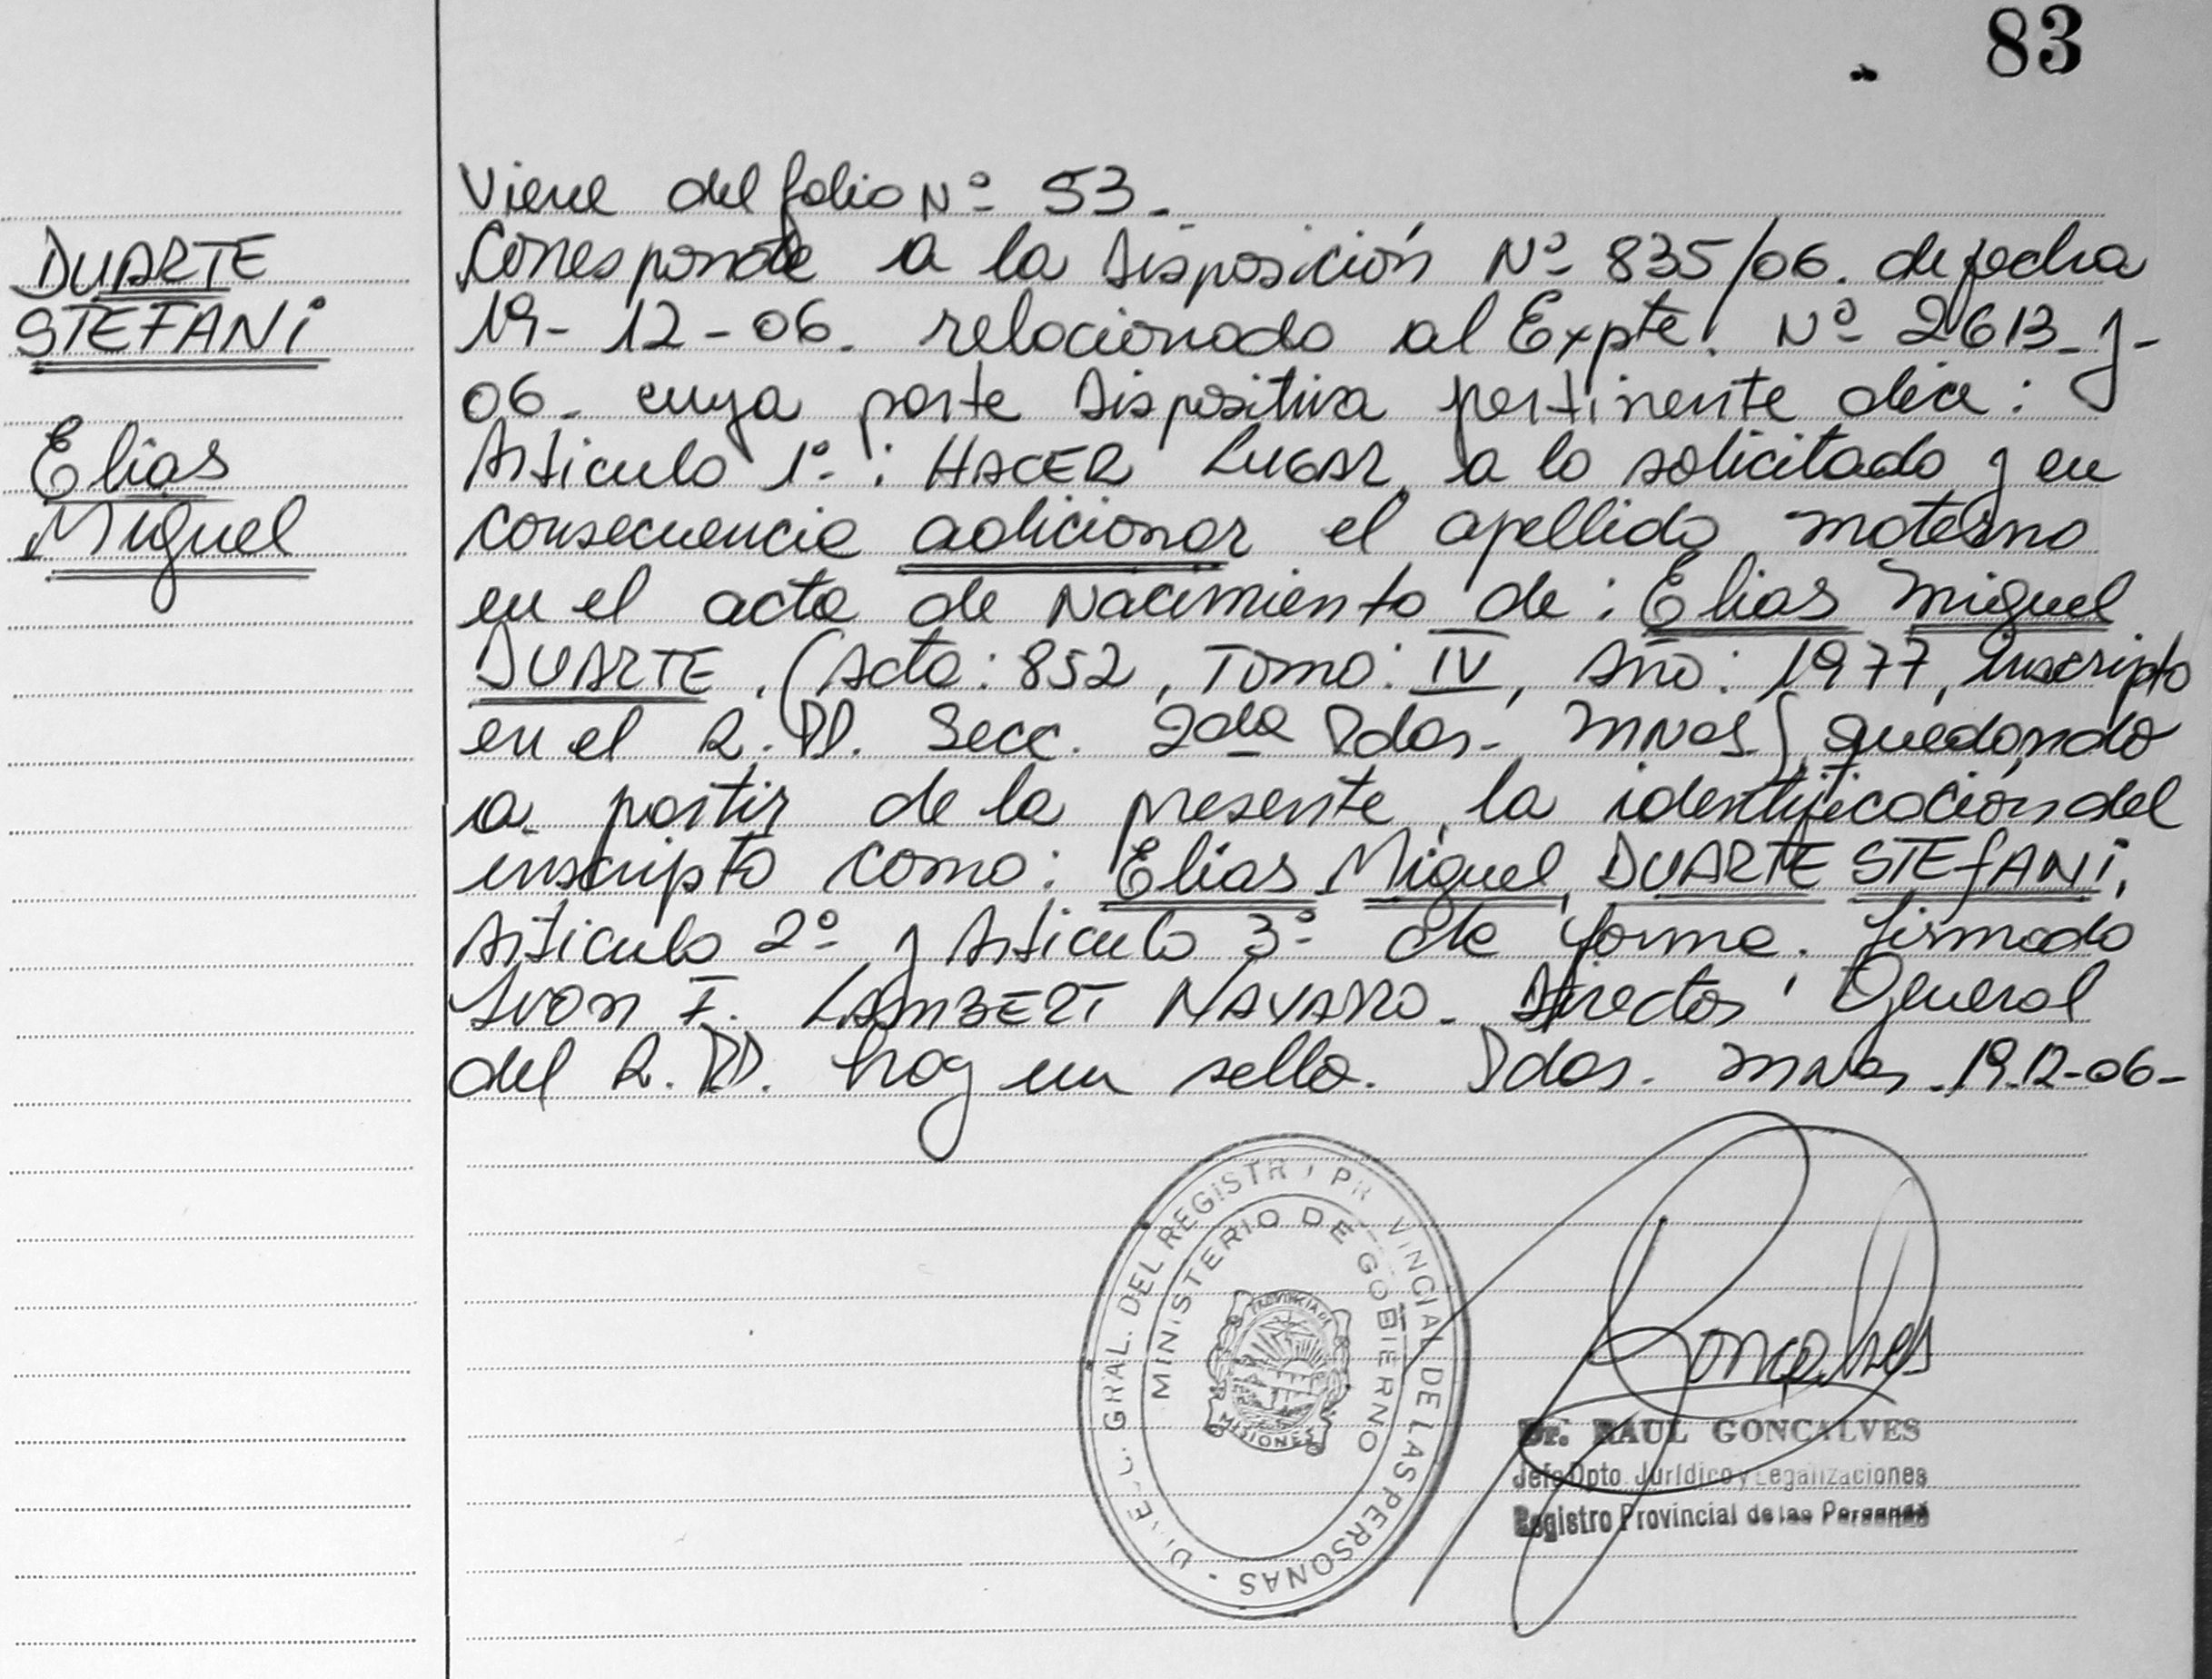 83
DUARTE
STEFANi
Elias
Miguel
Viene del folio Nº 53.
Corresponde a la Disposición Nº 835/06. de fecha
19-12-06. relacionado al Expte. Nº 2613-J-
06. cuya parte Dispositiva pertinente dice:
Articulo 1º: HACER LUGAR a lo solicitado y en
consecuencia adicionar el apellido materno
en el acta de Nacimiento de: Elias Miguel
DUARTE. (Acta: 852, Tomo: IV, Año: 1977, inscripto
en el R.PP. Secc. 2da Pdas- Mnes) quedando
a partir de la presente, la identificación del
inscripto como: Elias Miguel, DUARTE STEfANi,
Articulo 2º y Articulo 3º de forma. firmado
Ivan F. LAMBERT NAVARRO. Director General
del R.PP. hay un sello. Pdas. Mnes. 19-12-06-
DIREC. GRAL. DEL REGISTRO PROVINCIAL DE LAS PERSONAS
MINISTERIO DE GOBIERNO
PROVINCIA DE
MISIONES
Goncalves
Dr. RAUL GONCALVES
Jefe Dpto. Jurídico y Legalizaciones
Registro Provincial de las Personas